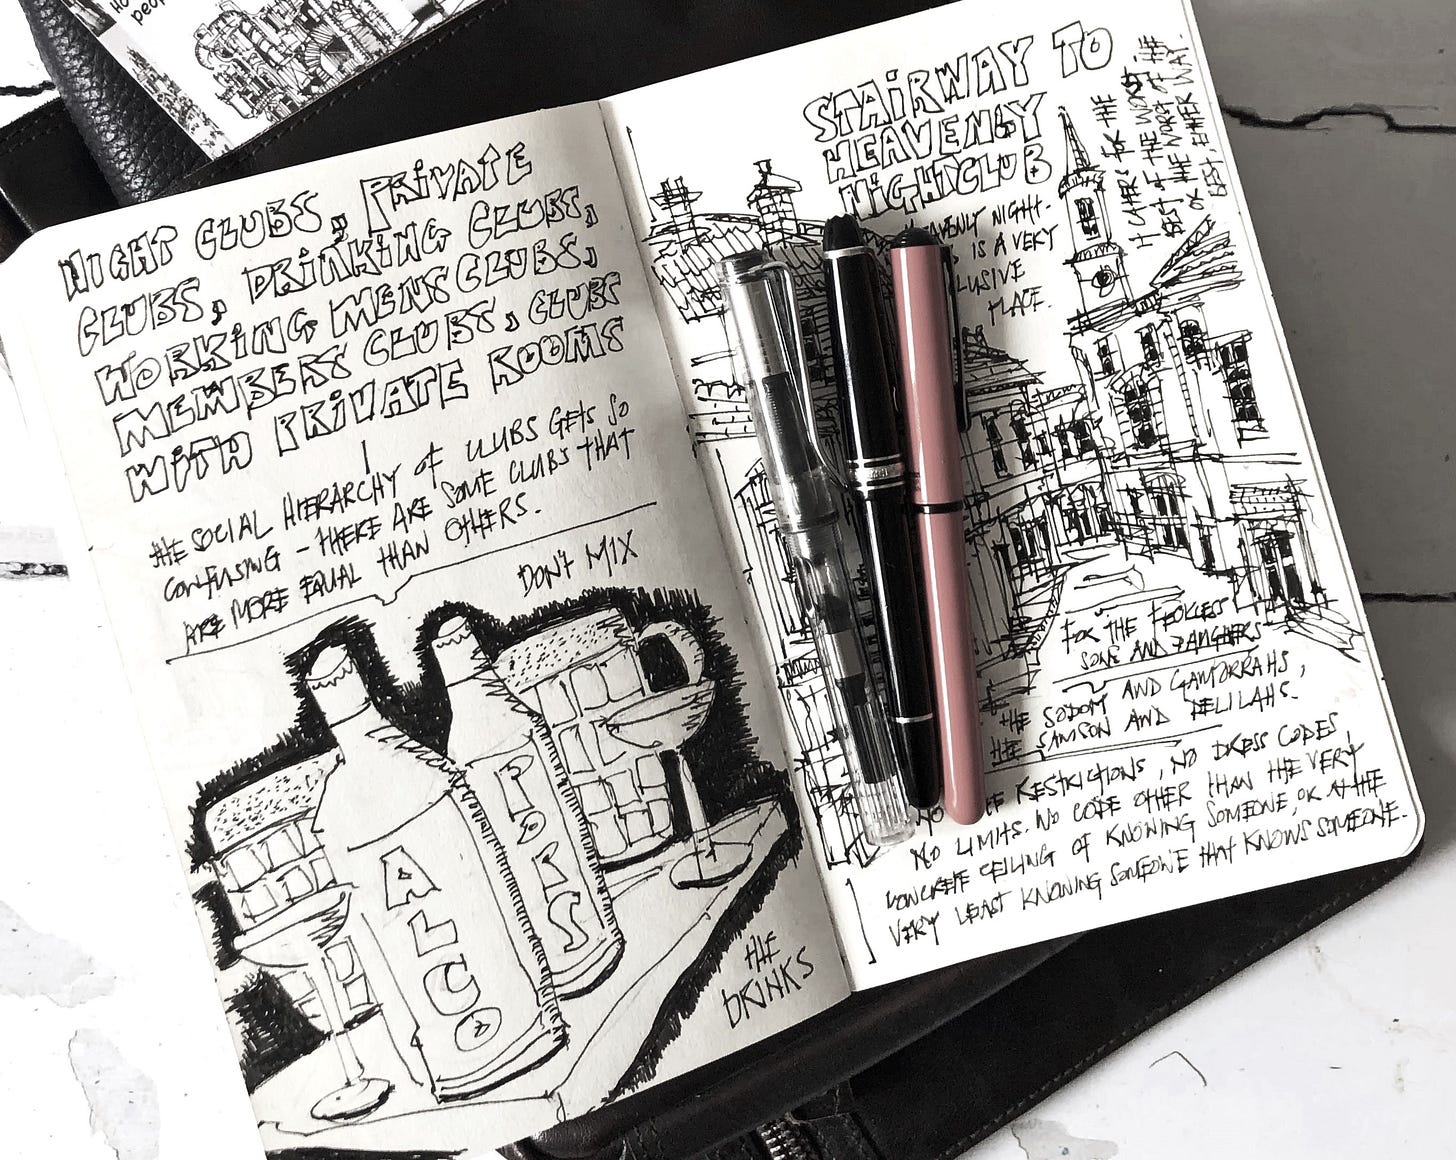 NIGHT CLUBS, PRIVATE
CLUBS, DRINKING CLUBS,
WORKING MENS CLUBS,
MEMBERS CLUBS, CLUBS
WITH PRIVATE ROOMS
THE SOCIAL HIERARCHY OF CLUBS GETS SO
CONFUSING - THERE ARE SOME CLUBS THAT
ARE MORE EQUAL THAN OTHERS.
DON'T MIX
ALCO
POPS
THE
DRINKS
STAIRWAY TO
HEAVENLY
NIGHTCLUB
NIGHT-
IS A VERY
PLACE.
IT CATERS FOR THE
BEST OF THE WORST,
OR THE WORST OF THE
BEST EITHER WAY.
FOR THE FECKLESS
SONS AND
THE SODOM AND GAMORRAHS,
THE SAMSON AND DELILAHS.
NO RESTRICTIONS, NO DRESS CODES,
NO LIMITS. NO CODE OTHER THAN THE VERY
CONCRETE CEILING OF KNOWING SOMEONE, OR AT THE
VERY LEAST KNOWING SOMEONE THAT KNOWS SOMEONE.